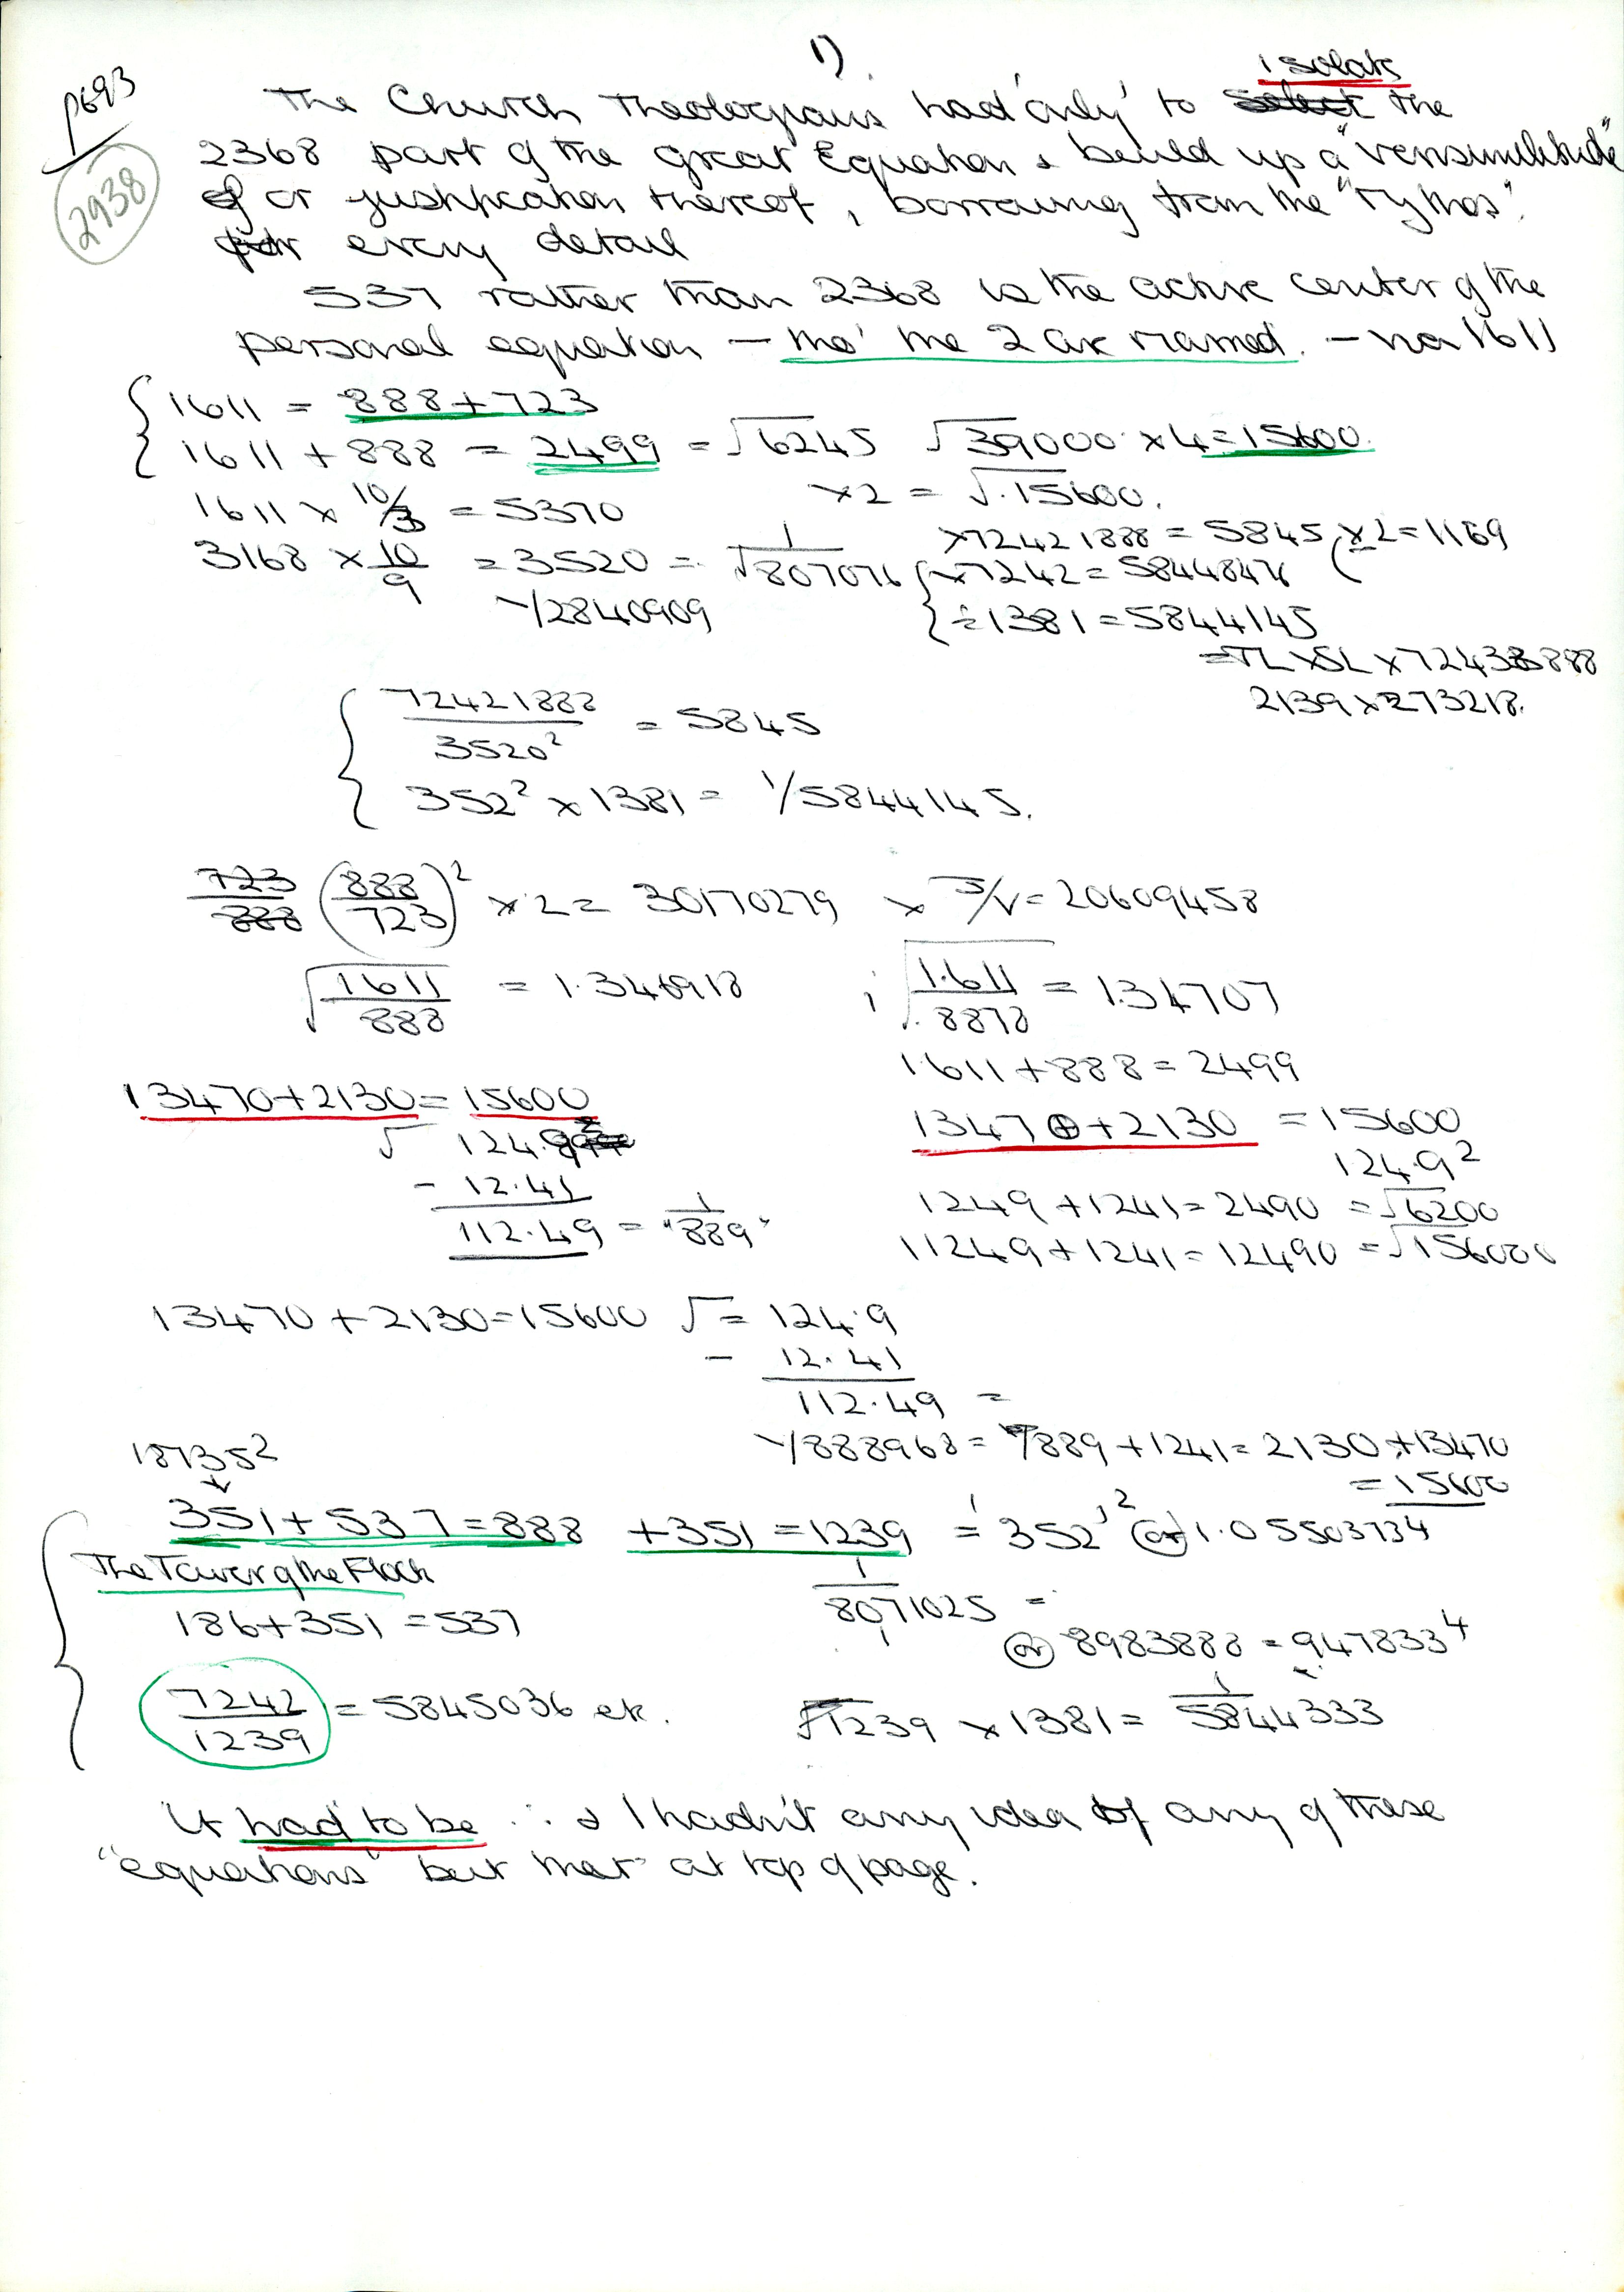 1)
p693
2938
isolate
The Church Theologians had 'only' to select the
2368 part of the great Equation & build up a "verisimilitude"
of or justification thereof, borrowing from the "Mythos".
for every detail
537 rather than 2368 is the active center of the
personal equation — tho' the 2 are married. — via 1611
1611 = 888 + 723
1611 + 888 = 2499 = √6245 √39000 × 4 = 15600
1611 × 10/3 = 5370 × 2 = √15600.
3168 × 10/9 = 3520 = 1/√807076
1/2840909
×72421888 = 5845 (×2 = 1169
×7242 = 58448476
÷1381 = 5844145
= TL × SL × 72438888
2139 × 273218.
72421888/3520² = 5845
352² × 1381 = 1/5844145.
723/888 (888/723)² × 2 = 30170279 × J/V = 20609458
√1611/888 = 1.346918 ; √1.611/8878 = 1.34707
1611 + 888 = 2499
13470 + 2130 = 15600
√ 124.9²
- 12.41
112.49 = 1/"889"
13470 + 2130 = 15600
124.9²
1249 + 1241 = 2490 = √6200
11249 + 1241 = 12490 = √156000
13470 + 2130 = 15600 √ = 124.9
- 12.41
112.49 =
1/888968 = 1/889 + 1241 = 2130 + 13470
= 15600
18735²
351 + 537 = 888 + 351 = 1239 = 352² or 1.05503734
The Tower of the Flock
186 + 351 = 537
1/8071025 =
or 8983888 = 947833⁴
7242/1239 = 5845036 etc.
√1239 × 1381 = 1/5844333
It had to be ∴ & I hadn't any idea of any of these
"equations" but that at top of page.